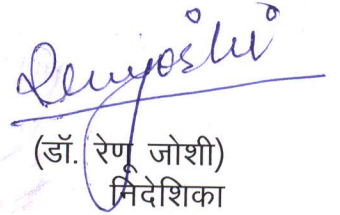 Renujoshi
(डॉ. रेणू जोशी)
निदेशिका